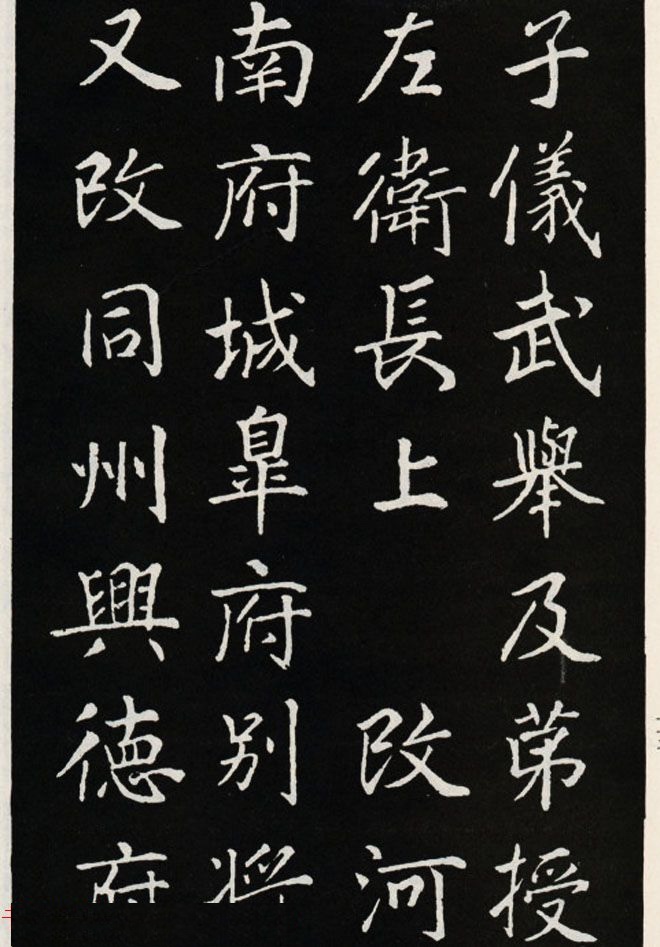 子儀武舉及苐授
左衛長上 改河
南府城皐府别將
又改同州興德府